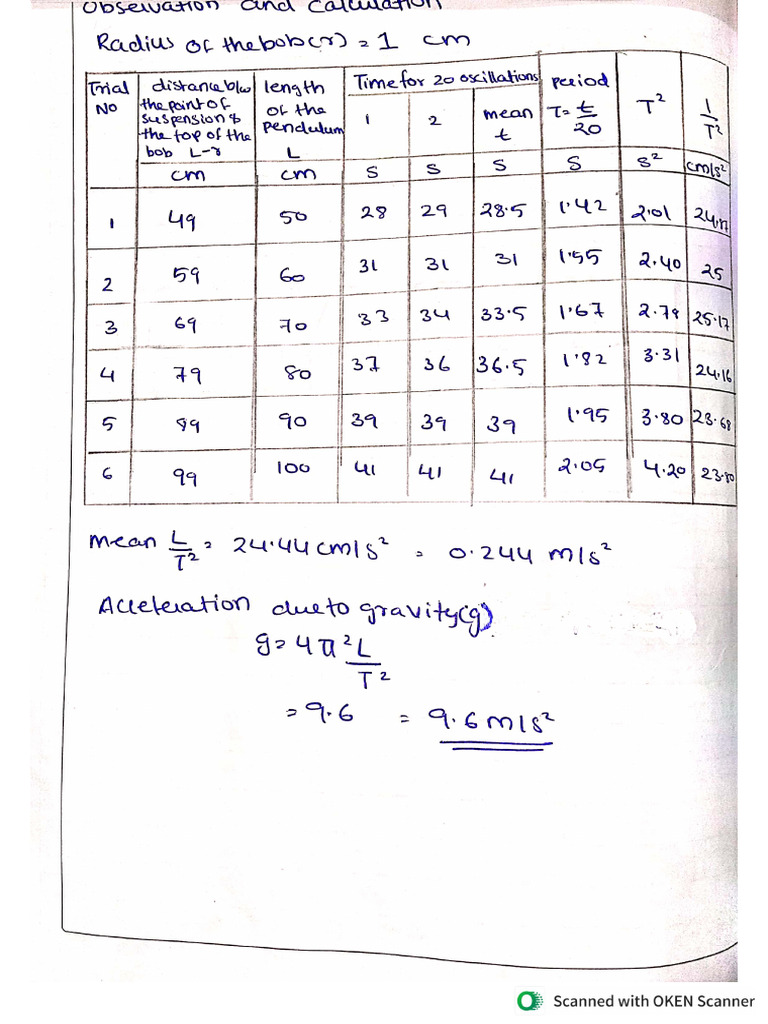 Observation and Calculation
Radius of the bob(r) = 1 cm
Trial No | distance b/w the point of suspension & the top of the bob L-r | length of the pendulum L | Time for 20 oscillations | period T= t/20 | T² | 1/T²
1 | 2 | mean t
cm | cm | s | s | s | s | s² | cm/s²
1 | 49 | 50 | 28 | 29 | 28.5 | 1.42 | 2.01
2 | 59 | 60 | 31 | 31 | 31 | 1.55 | 2.40 | 25
3 | 69 | 70 | 33 | 34 | 33.5 | 1.67 | 2.78 | 25.17
4 | 79 | 80 | 37 | 36 | 36.5 | 1.82 | 3.31 | 24.16
5 | 89 | 90 | 39 | 39 | 39 | 1.95 | 3.80 | 23.68
6 | 99 | 100 | 41 | 41 | 41 | 2.05 | 4.20 | 23.80
mean L/T² = 24.44 cm/s² = 0.244 m/s²
Acceleration due to gravity(g)
g = 4π²L/T²
= 9.6 = 9.6 m/s²
Scanned with OKEN Scanner